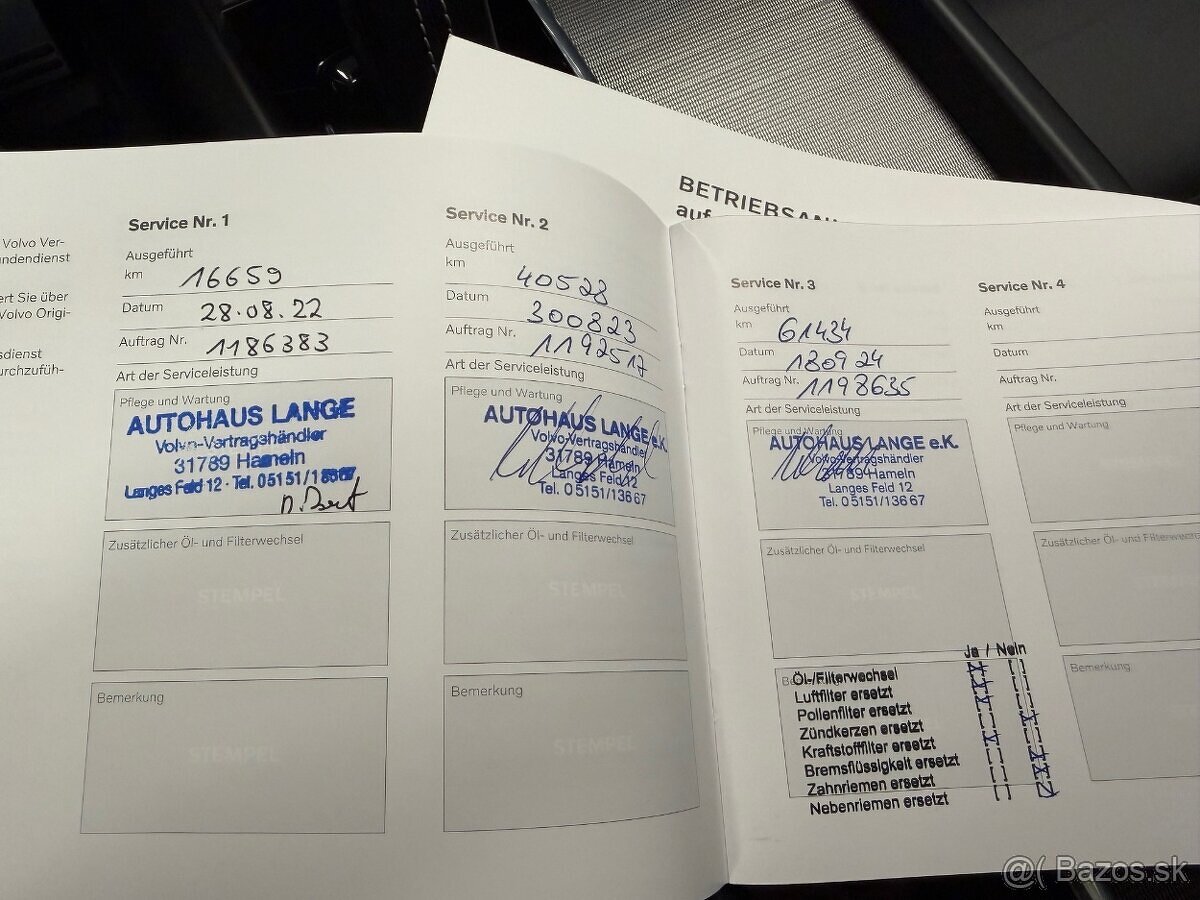 BETRIEBSAN
auf
Volvo Ver-
ndendienst
ert Sie über
Volvo Origi-
sdienst
urchzufüh-
Service Nr. 1
Ausgeführt
km 16659
Datum 28.08.22
Auftrag Nr. 1186383
Art der Serviceleistung
Pflege und Wartung
AUTOHAUS LANGE
Volvo-Vertragshändler
31789 Hameln
Langes Feld 12 · Tel. 05151/13667
Zusätzlicher Öl- und Filterwechsel
STEMPEL
Bemerkung
STEMPEL
Service Nr. 2
Ausgeführt
km 40528
Datum 300823
Auftrag Nr. 1192517
Art der Serviceleistung
Pflege und Wartung
AUTOHAUS LANGE e.K.
Volvo-Vertragshändler
31789 Hameln
Langes Feld 12
Tel. 05151/13667
Zusätzlicher Öl- und Filterwechsel
STEMPEL
Bemerkung
STEMPEL
Service Nr. 3
Ausgeführt
km 61434
Datum 180924
Auftrag Nr. 1198635
Art der Serviceleistung
Pflege und Wartung
AUTOHAUS LANGE e.K.
Volvo-Vertragshändler
31789 Hameln
Langes Feld 12
Tel. 05151/13667
Zusätzlicher Öl- und Filterwechsel
STEMPEL
Ja / Nein
Öl-/Filterwechsel
Luftfilter ersetzt
Pollenfilter ersetzt
Zündkerzen ersetzt
Kraftstofffilter ersetzt
Bremsflüssigkeit ersetzt
Zahnriemen ersetzt
Nebenriemen ersetzt
Service Nr. 4
Ausgeführt
km
Datum
Auftrag Nr.
Art der Serviceleistung
Pflege und Wartung
Zusätzlicher Öl- und Filterwechse
Bemerkung
@( Bazos.sk